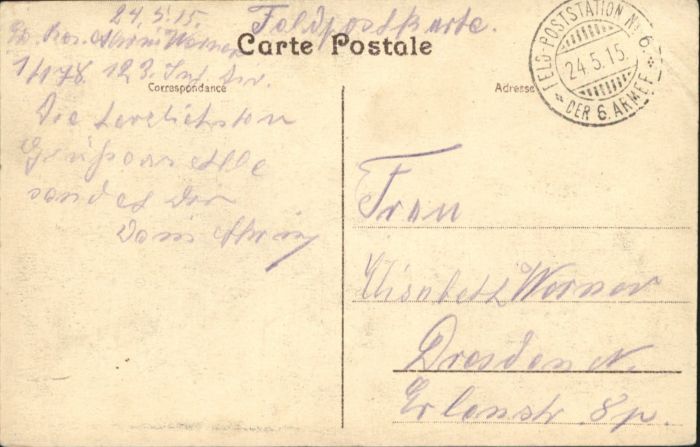 24.5.15. Feldpostkarte.
Carte Postale
Werner
1/178. 123. Inf. Div.
Correspondance
Die herzlichsten
Grüße an alle
sendet Dir
Dein
Adresse
FELD-POSTSTATION No 6.
24.5.15.
DER 6. ARMEE
Frau
Elisabeth Werner
Dresden N.
Erlenstr. 8 p.